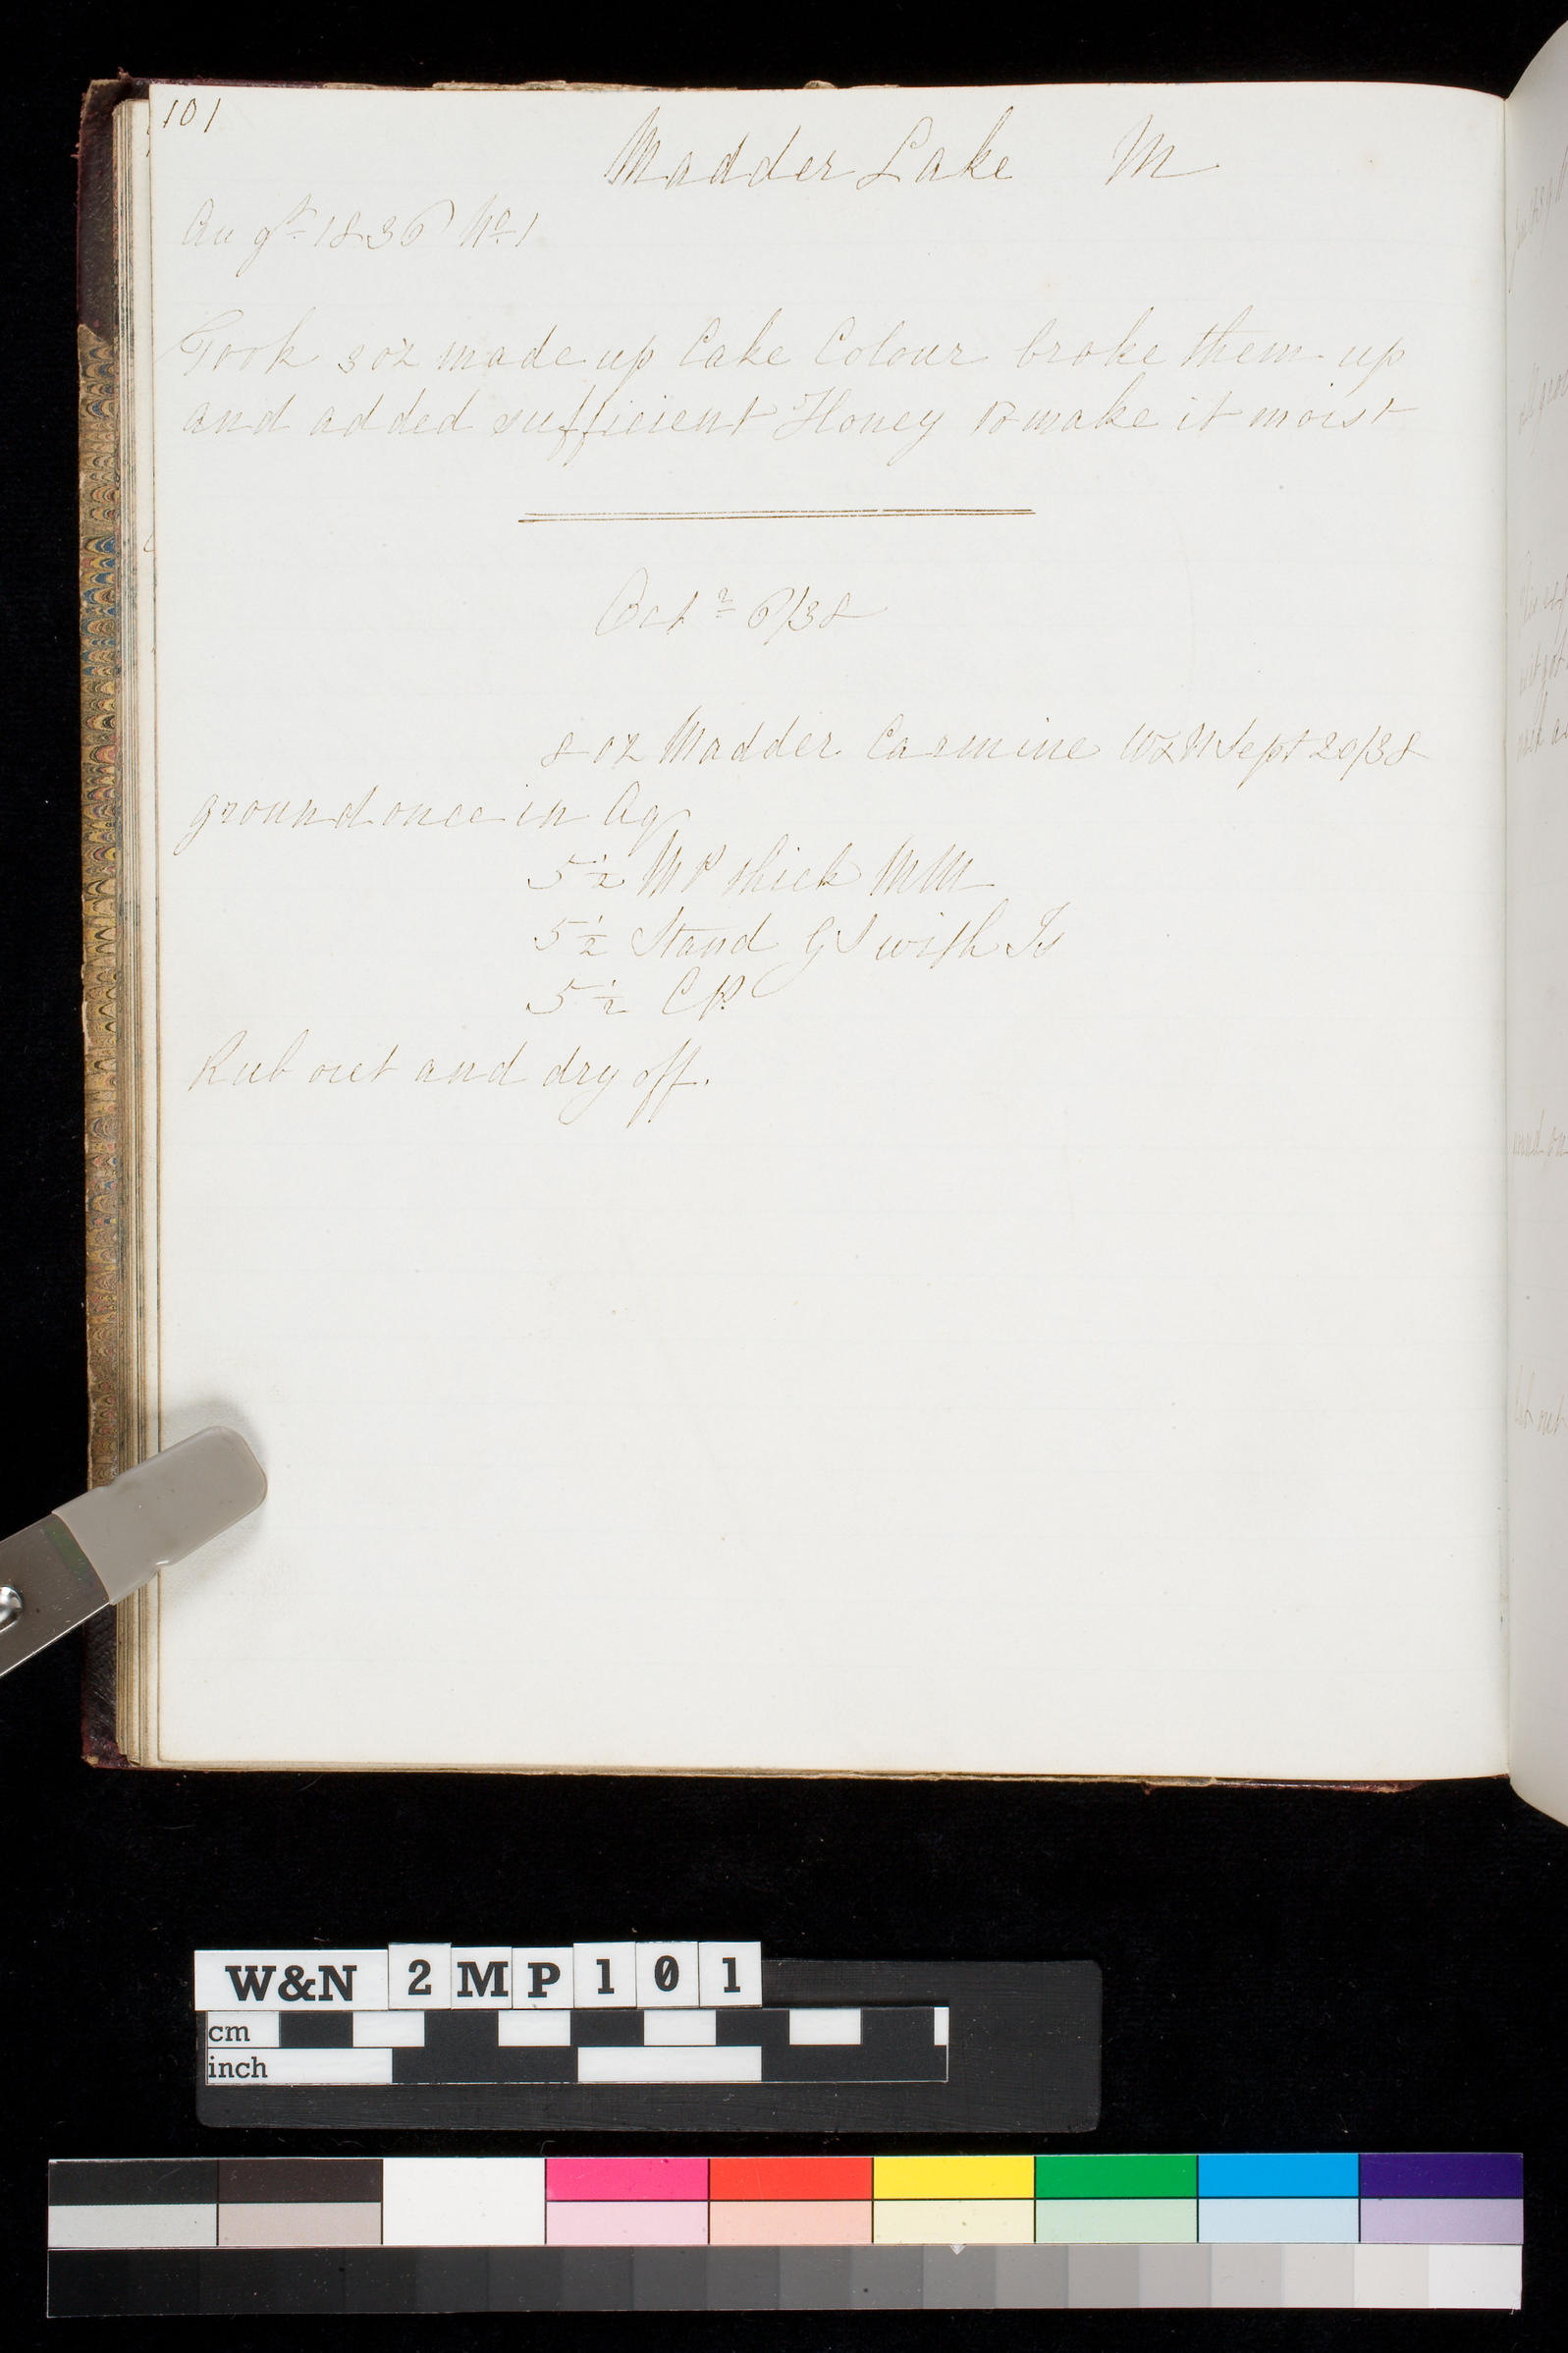 101
Madder Lake M
Augt 1836 No 1
Took 3 oz made up Cake Colour broke them up
and added sufficient Honey to make it moist
Octr 6/38
8 oz Madder Carmine W&N Sept 20/38
ground once in Aq
5 1/2 MP thick MM
5 1/2 Stand GS with Is
5 1/2 CP
Rub out and dry off.
W&N 2MP101
cm
inch